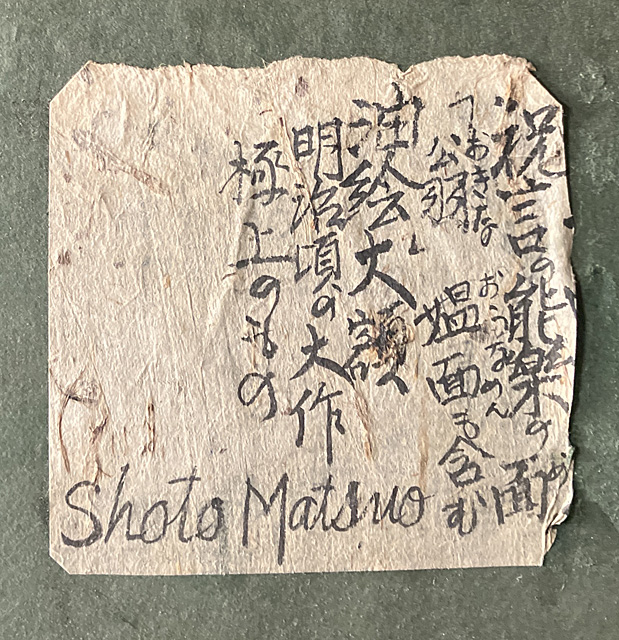 祝言の能楽の面
おきな おうなめん
翁 媼面も含む
油絵大額
明治頃の大作
極上のもの
Shoto Matsuo